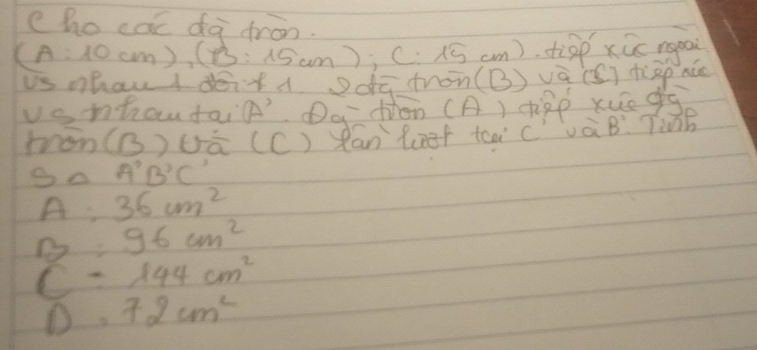 Cho các đg tròn.
(A: 10 cm), (B: 15 cm); C: 15 cm). tiếp xúc ngoài
vs nhau 1 đôi 1 2 đg tròn (B) và (C) tiếp xúc
vs nhau tại A'. Đg tròn (A) tiếp xúc đg
tròn (B) và (C) lần lượt tại C' và B'. Tính
S△ A'B'C'
A: 36 cm²
B: 96 cm²
C = 144 cm²
D. 72 cm²